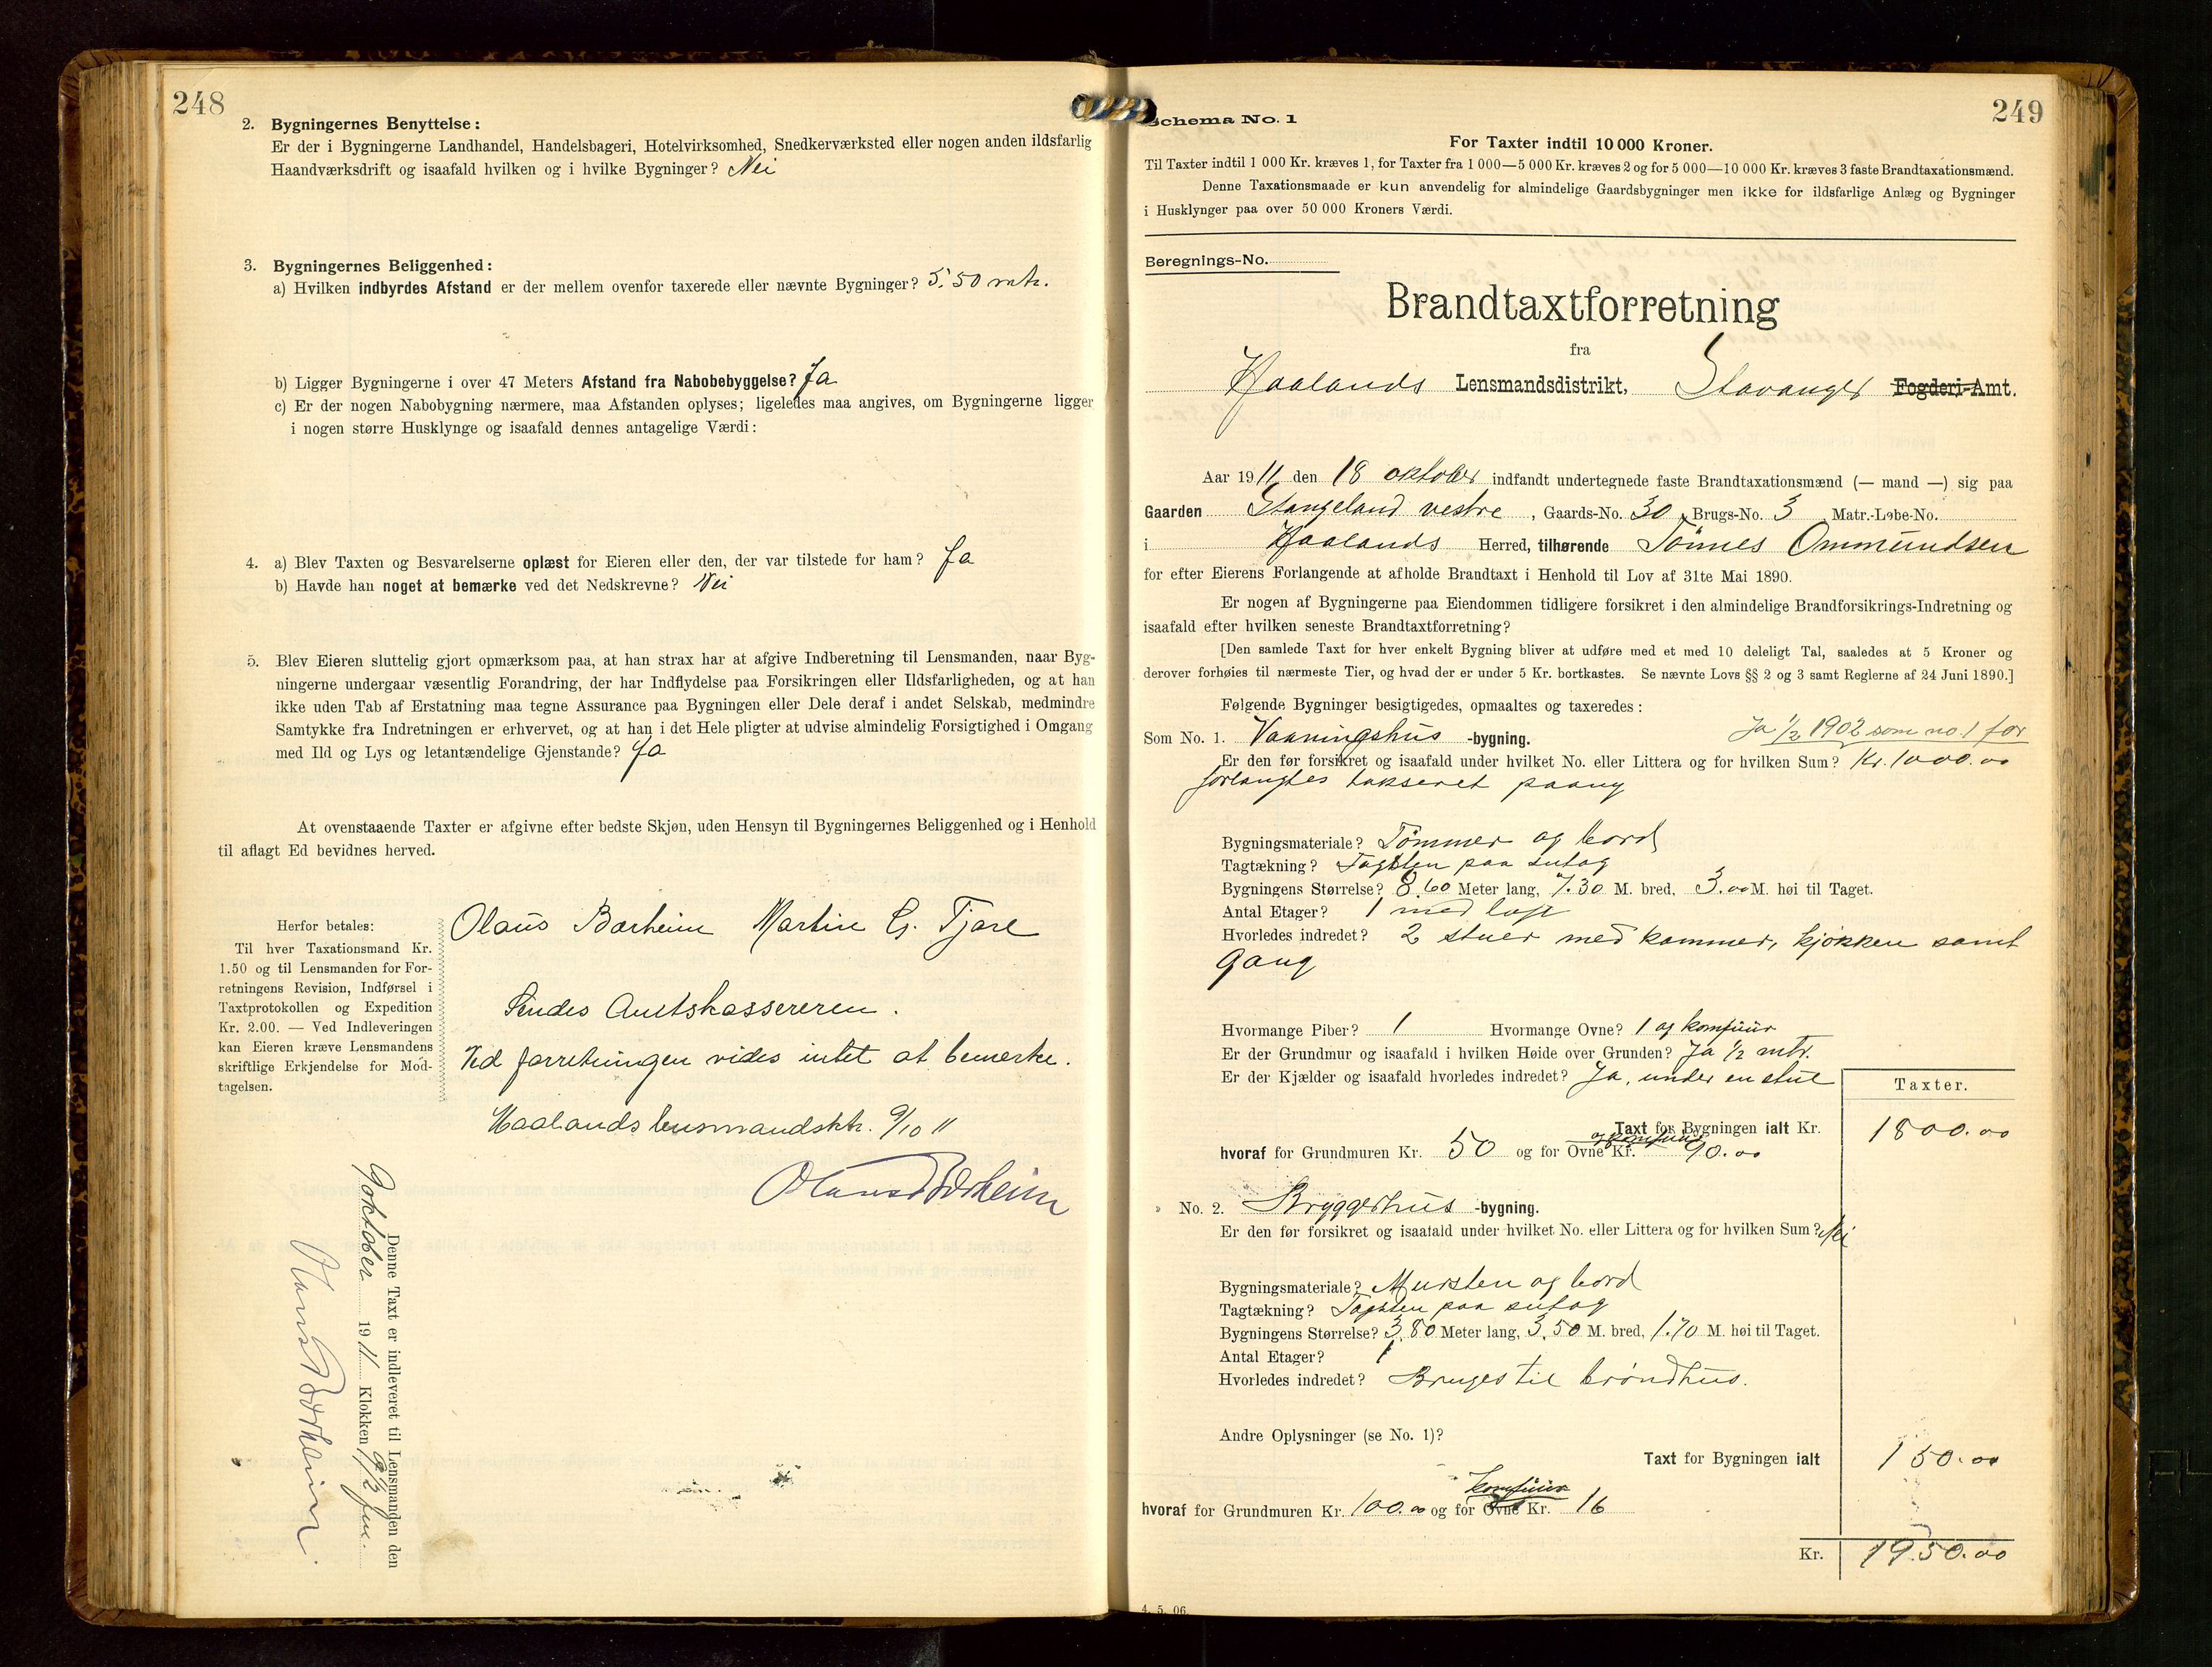 248
2. Bygningernes Benyttelse:
Er der i Bygningerne Landhandel, Handelsbageri, Hotelvirksomhed, Snedkerværksted eller nogen anden ildsfarlig
Haandværksdrift og isaafald hvilken og i hvilke Bygninger? Nei
3. Bygningernes Beliggenhed:
a) Hvilken indbyrdes Afstand er der mellem ovenfor taxerede eller nævnte Bygninger? 5,50 mtr.
b) Ligger Bygningerne i over 47 Meters Afstand fra Nabobebyggelse? Ja
c) Er der nogen Nabobygning nærmere, maa Afstanden oplyses; ligeledes maa angives, om Bygningerne ligger
i nogen større Husklynge og isaafald dennes antagelige Værdi:
4. a) Blev Taxten og Besvarelserne oplæst for Eieren eller den, der var tilstede for ham? Ja
b) Havde han noget at bemærke ved det Nedskrevne? Nei
5. Blev Eieren sluttelig gjort opmærksom paa, at han strax har at afgive Indberetning til Lensmanden, naar Byg-
ningerne undergaar væsentlig Forandring, der har Indflydelse paa Forsikringen eller Ildsfarligheden, og at han
ikke uden Tab af Erstatning maa tegne Assurance paa Bygningen eller Dele deraf i andet Selskab, medmindre
Samtykke fra Indretningen er erhvervet, og at han i det Hele pligter at udvise almindelig Forsigtighed i Omgang
med Ild og Lys og letantændelige Gjenstande? Ja
At ovenstaaende Taxter er afgivne efter bedste Skjøn, uden Hensyn til Bygningernes Beliggenhed og i Henhold
til aflagt Ed bevidnes herved.
Herfor betales:
Til hver Taxationsmand Kr.
1.50 og til Lensmanden for For-
retningens Revision, Indførsel i
Taxtprotokollen og Expedition
Kr. 2.00. — Ved Indleveringen
kan Eieren kræve Lensmandens
skriftlige Erkjendelse for Mod-
tagelsen.
Olaus Børheim Martin G. Tjore
Sendes Amtskassereren.
Ved forretningen vides intet at bemerke.
Haalands lensmandsktr. 9/10 11
Olaus Børheim
Denne Taxt er indleveret til Lensmanden den
9 oktober 1911 Klokken 9 1/2 fm.
Olaus Børheim.
249
Schema No. 1
For Taxter indtil 10 000 Kroner.
Til Taxter indtil 1 000 Kr. kræves 1, for Taxter fra 1 000—5 000 Kr. kræves 2 og for 5 000—10 000 Kr. kræves 3 faste Brandtaxationsmænd.
Denne Taxationsmaade er kun anvendelig for almindelige Gaardsbygninger men ikke for ildsfarlige Anlæg og Bygninger
i Husklynger paa over 50 000 Kroners Værdi.
Beregnings-No.
Brandtaxtforretning
fra
Haalands Lensmandsdistrikt, Stavanger Fogderi-Amt.
Aar 1911 den 18 oktober indfandt undertegnede faste Brandtaxationsmænd (— mand —) sig paa
Gaarden Stangeland vestre, Gaards-No. 30, Brugs-No. 3 Matr.-Løbe-No.
i Haalands Herred, tilhørende Tönnes Ommundsen
for efter Eierens Forlangende at afholde Brandtaxt i Henhold til Lov af 31te Mai 1890.
Er nogen af Bygningerne paa Eiendommen tidligere forsikret i den almindelige Brandforsikrings-Indretning og
isaafald efter hvilken seneste Brandtaxtforretning?
[Den samlede Taxt for hver enkelt Bygning bliver at udføre med et med 10 deleligt Tal, saaledes at 5 Kroner og
derover forhøies til nærmeste Tier, og hvad der er under 5 Kr. bortkastes. Se nævnte Lovs §§ 2 og 3 samt Reglerne af 24 Juni 1890.]
Følgende Bygninger besigtigedes, opmaaltes og taxeredes:
Som No. 1. Vaaningshus -bygning. Ja 1/2 1902 som no. 1 for
Er den før forsikret og isaafald under hvilket No. eller Littera og for hvilken Sum? Kr. 1000.00
forlangtes takseret paany
Bygningsmateriale? Tömmer og bord
Tagtækning? Tagsten paa sutag
Bygningens Størrelse? 8.60 Meter lang, 7.30 M. bred, 3.00 M. høi til Taget.
Antal Etager? 1 med loft
Hvorledes indredet? 2 stuer med kammer, kjøkken samt
gang
Hvormange Piber? 1 Hvormange Ovne? 1 og komfuur
Er der Grundmur og isaafald i hvilken Høide over Grunden? Ja 1/2 mtr.
Er der Kjælder og isaafald hvorledes indredet? Ja, under en stue
Taxter.
Taxt for Bygningen ialt Kr. 1800.00
og komfuur
hvoraf for Grundmuren Kr. 50 og for Ovne Kr. 90.00
No. 2. Bryggerhus -bygning.
Er den før forsikret og isaafald under hvilket No. eller Littera og for hvilken Sum? Nei
Bygningsmateriale? Mursten og bord
Tagtækning? Tagsten paa sutag
Bygningens Størrelse? 3,80 Meter lang, 3,50 M. bred, 1.70 M. høi til Taget.
Antal Etager? 1
Hvorledes indredet? Bruges til bröndhus.
Andre Oplysninger (se No. 1)?
Taxt for Bygningen ialt 150.00
komfuur
hvoraf for Grundmuren Kr. 100.00 og for Ovne Kr. 16
Kr. 1950.00
4. 5. 06.